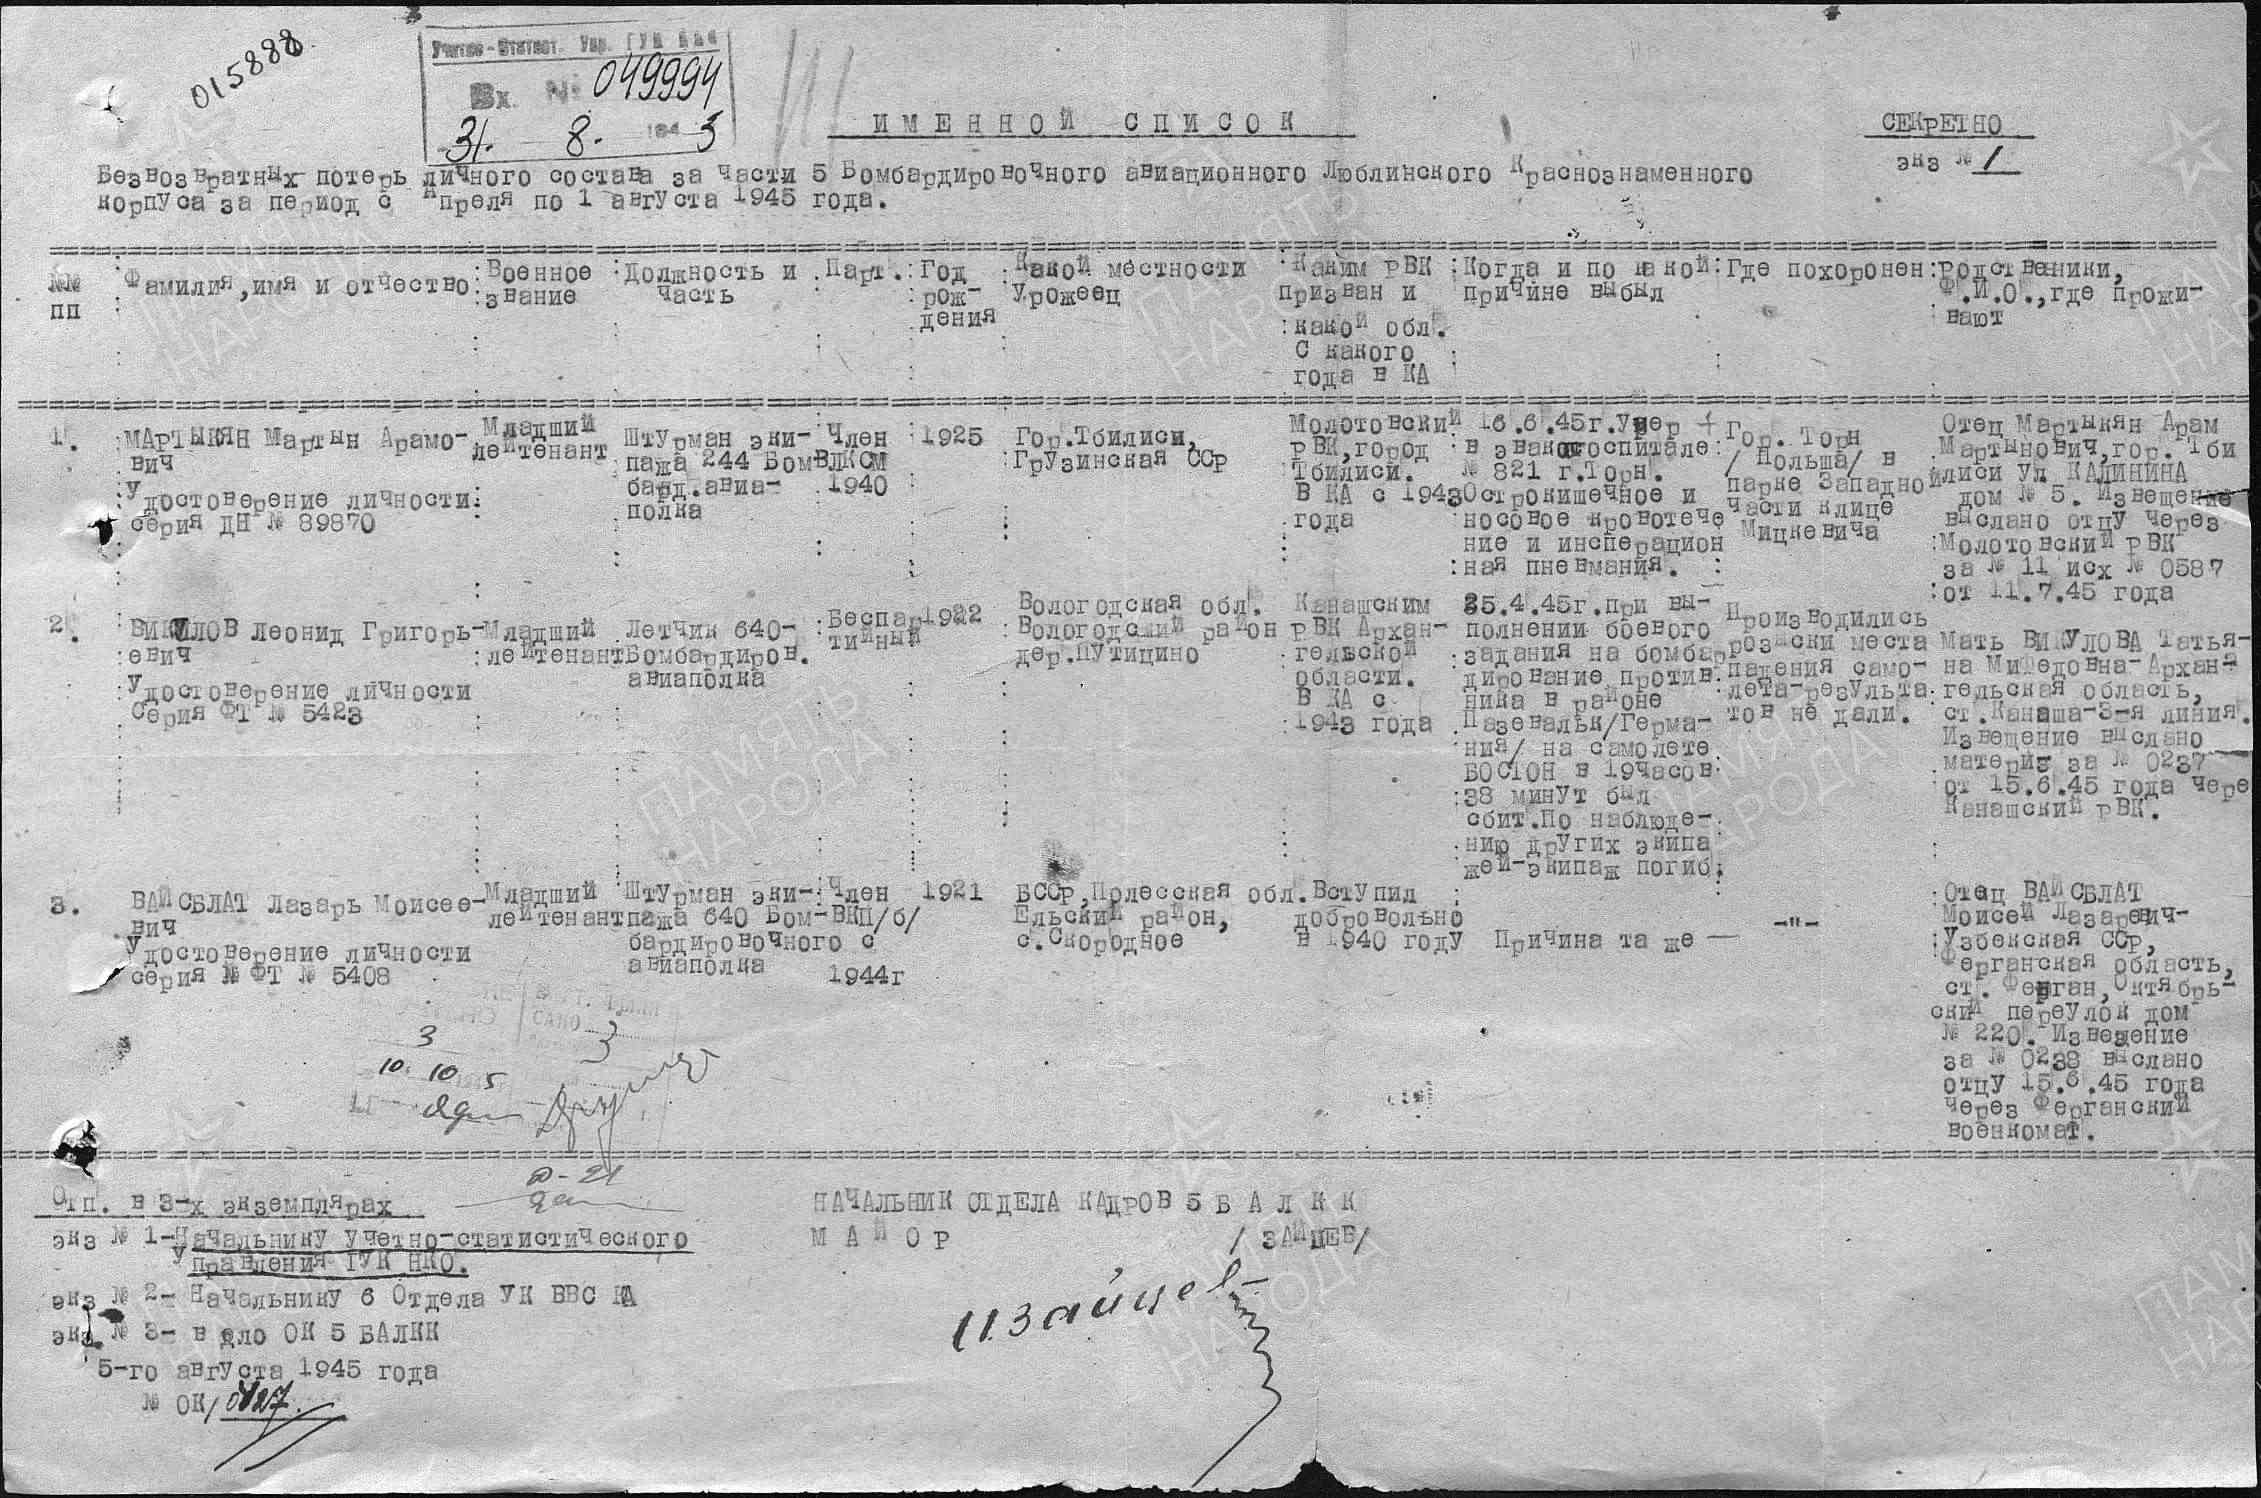 015888
Учетно-Статист. Упр. ГУК НКО
Вх. № 049994
31. 8. 1945
ИМЕННОЙ СПИСОК
СЕКРЕТНО
экз № 1
Безвозвратных потерь личного состава за части 5 Бомбардировочного авиационного Люблинского Краснознаменного
корпуса за период с Апреля по 1 августа 1945 года.
№№
пп
Фамилия,имя и отчество
Военное
звание
Должность и
часть
Парт.
Год
рож-
дения
Какой местности
Урожеец
Каким РВК
призван и
какой обл.
С какого
года в КА
Когда и по какой
причине выбыл
Где похоронен
Родственики,
Ф.И.О.,где прожи-
вают
1.
МАРТЫКЯН Мартын Арамо-
вич
Удостоверение личности
серия ДН № 89870
Младший
лейтенант
Штурман эки-
пажа 244 Бом-
бард.авиа-
полка
Член
ВЛКСМ
1940
1925
Гор.Тбилиси,
Грузинская ССР
Молотовский
РВК,город
Тбилиси.
В КА с 1943
года
16.6.45г.Умер
в эвакогоспитале
№ 821 г.Торн.
Острокишечное и
носовое кровотече
ние и инсперацион
ная пневмания.
Гор. Торн
/Польша/ в
парке Западной
части клице
Мицкевича
Отец Мартыкян Арам
Мартынович,гор.Тби
лиси ул КАЛИНИНА
дом № 5. Извещение
выслано отцу через
Молотовский РВК
за № 11 исх № 0587
от 11.7.45 года
2.
ВИКУЛОВ Леонид Григорь-
евич
Удостоверение личности
Серия ФТ № 5423
Младший
лейтенант
Летчик 640-
Бомбардиров.
авиаполка
Беспар
тийный
1922
Вологодская обл.
Вологодский район
дер.ПУТИЦИНО
Канашским
РВК Архан-
гельской
области.
В КА с
1943 года
25.4.45г.при вы-
полнении боевого
задания на бомбар
дирование против
ника в районе
Пазевальк/Герма-
ния/ на самолете
БОСТОН в 19часов
38 минут был
сбит.По наблюде-
нию других экипа
жей-экипаж погиб.
Производились
розыски места
падения само-
лета-результа
тов не дали.
Мать ВИКУЛОВА Татья-
на Мифедовна-Архан-
гельская область,
ст.Канаша-3-я линия.
Извещение выслано
матери за № 0237
от 15.6.45 года чере
Канашский РВК.
3.
ВАЙСБЛАТ Лазарь Моисее-
вич
Удостоверение личности
серия № ФТ № 5408
Младший
лейтенант
Штурман эки-
пажа 640 Бом-
бардировочного
авиаполка
Член
ВКП/б/
с
1944г
1921
БССР,Полесская обл.
Ельский район,
с.Скородное
Вступил
добровольно
в 1940 году
Причина та же —
-"-
Отец ВАЙСБЛАТ
Моисей Лазаревич-
Узбекская ССР,
Ферганская область,
ст. Ферган,Октябрь-
ский переулок дом
№ 220. Извещение
за № 0238 выслано
отцу 15.6.45 года
через Ферганский
военкомат.
3
3
10. 10 5
Д-21
Отп. в 3-х экземплярах
экз № 1-Начальнику Учетно-статистического
Управления ГУК НКО.
экз № 2- Начальнику 6 Отдела УК ВВС КА
экз № 3- в дело ОК 5 БАЛКК
5-го августа 1945 года
№ ОК/0427.
НАЧАЛЬНИК ОТДЕЛА КАДРОВ 5 Б А Л К К
М А Й О Р /ЗАЙЦЕВ/
ПАМЯТЬ
НАРОДА